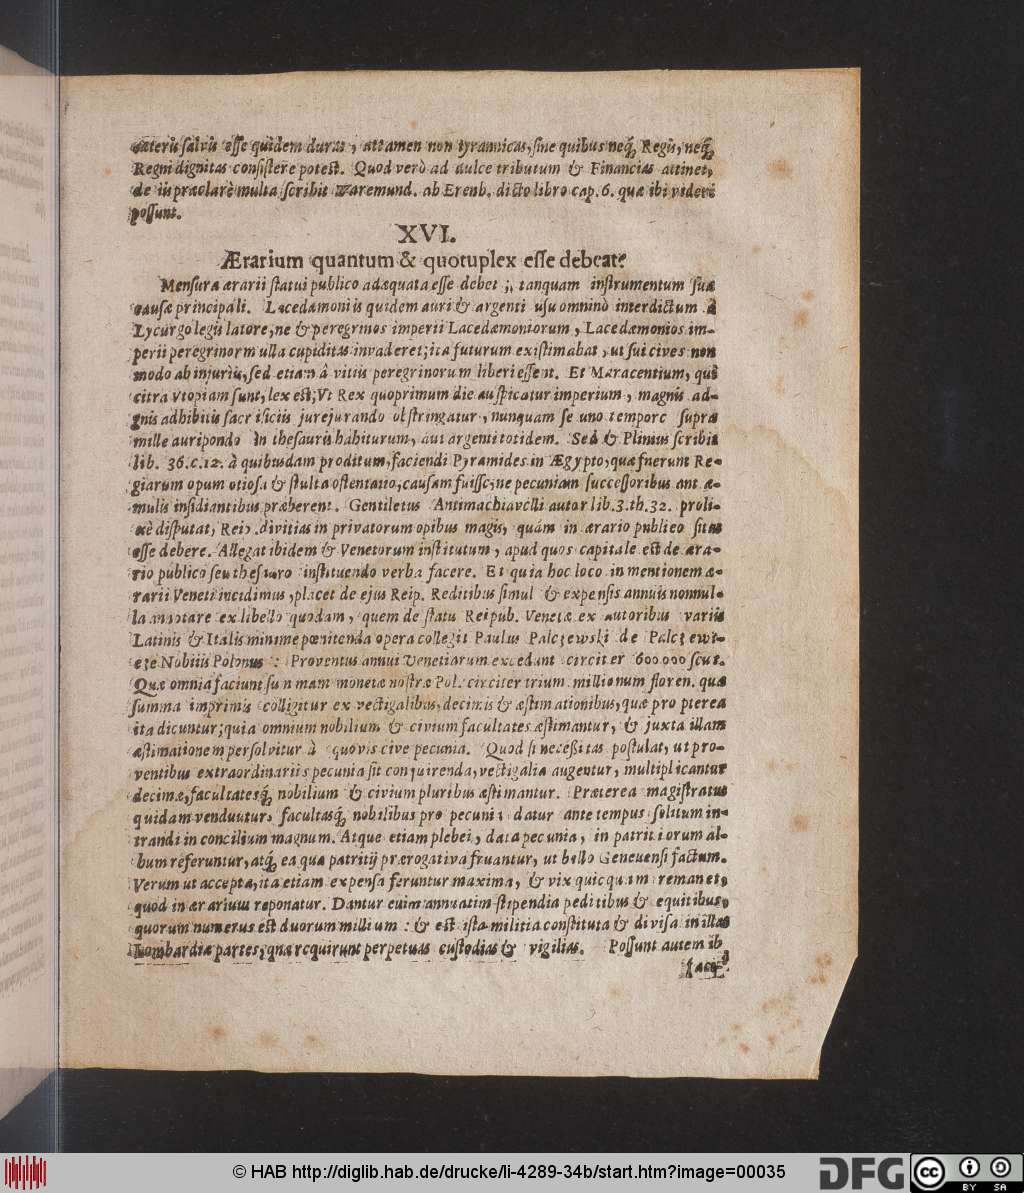 cæteris salvis esse quidem duras, attamen non tyrannicas, sine quibus neq; Regis, neq;
Regni dignitas consistere potest. Quod verò ad dulce tributum & Financias attinet,
de iis præclarè multa scribit Waremund. ab Erenb. dicto libro cap. 6. quæ ibi videri
possunt.
XVI.
Ærarium quantum & quotuplex esse debeat?
Mensura ærarii statui publico adæquata esse debet, tanquam instrumentum suæ
causæ principali. Lacedæmoniis quidem auri & argenti usu omninò interdictum à
Lycurgo legis latore, ne & peregrinos imperii Lacedæmoniorum, Lacedæmonios im-
perii peregrinorum ulla cupiditas invaderet; ita futurum existimabat, ut sui cives non
modo ab injuriis, sed etiam â vitiis peregrinorum liberi essent. Et Maracentium, qui
citra Vtopiam sunt, lex est; Vt Rex quoprimum die auspicatur imperium, magnis ad-
gnis adhibitis sacrificiis jurejurando obstringatur, nunquam se uno tempore supra
mille auripondo in thesauris habiturum, aut argenti totidem. Sed & Plinius scribit
lib. 36. c. 12. à quibusdam proditum, faciendi Pyramides in Ægypto, quæ fuerunt Re-
giarum opum otiosa & stulta ostentatio, causam fuisse; ne pecuniam successoribus aut æ-
mulis insidiantibus præberent. Gentiletus Antimachiavelli autor lib. 3. th. 32. proli-
xè disputat, Reip. divitias in privatorum opibus magis, quàm in ærario publico sitas
esse debere. Allegat ibidem & Venetorum institutum, apud quos capitale est de æra-
rio publico seu thesauro instituendo verba facere. Et quia hoc loco in mentionem æ-
rarii Veneti incidimus, placet de ejus Reip. Reditibus simul & expensis annuis nonnul-
la annotare ex libello quodam, quem de statu Reipub. Venetæ ex autoribus variis
Latinis & Italis minime pœnitenda opera collegit Paulus Palczewski de Palczewi-
cze Nobilis Polonus: Proventus annui Venetiarum excedunt circiter 600000 scut.
Quæ omnia faciunt summam monetæ nostræ Pol. circiter trium millionum floren. quæ
summa imprimis colligitur ex vectigalibus, decimis & æstimationibus, quæ propterea
ita dicuntur; quia omnium nobilium & civium facultates æstimantur, & juxta illam
æstimationem persolvitur à quovis cive pecunia. Quod si necessitas postulat, ut pro-
ventibus extraordinariis pecunia sit conquirenda, vectigalia augentur, multiplicantur
decimæ, facultatesq; nobilium & civium pluribus æstimantur. Præterea magistratus
quidam venduntur, facultasq; nobilibus pro pecunia datur ante tempus solitum in-
trandi in concilium magnum. Atque etiam plebei, data pecunia, in patritiorum al-
bum referuntur, atq; ea qua patritij prærogativa fruantur, ut bello Genevensi factum.
Verum ut accepta, ita etiam expensa feruntur maxima, & vix quicquam remanet,
quod in ærarium reponatur. Dantur enim annuatim stipendia peditibus & equitibus,
quorum numerus est duorum millium: & est ista militia constituta & divisa in illas
Lombardiæ partes, quæ requirunt perpetuas custodias & vigilias. Possunt autem ib
© HAB http://diglib.hab.de/drucke/li-4289-34b/start.htm?image=00035
DFG
cc
BY SA